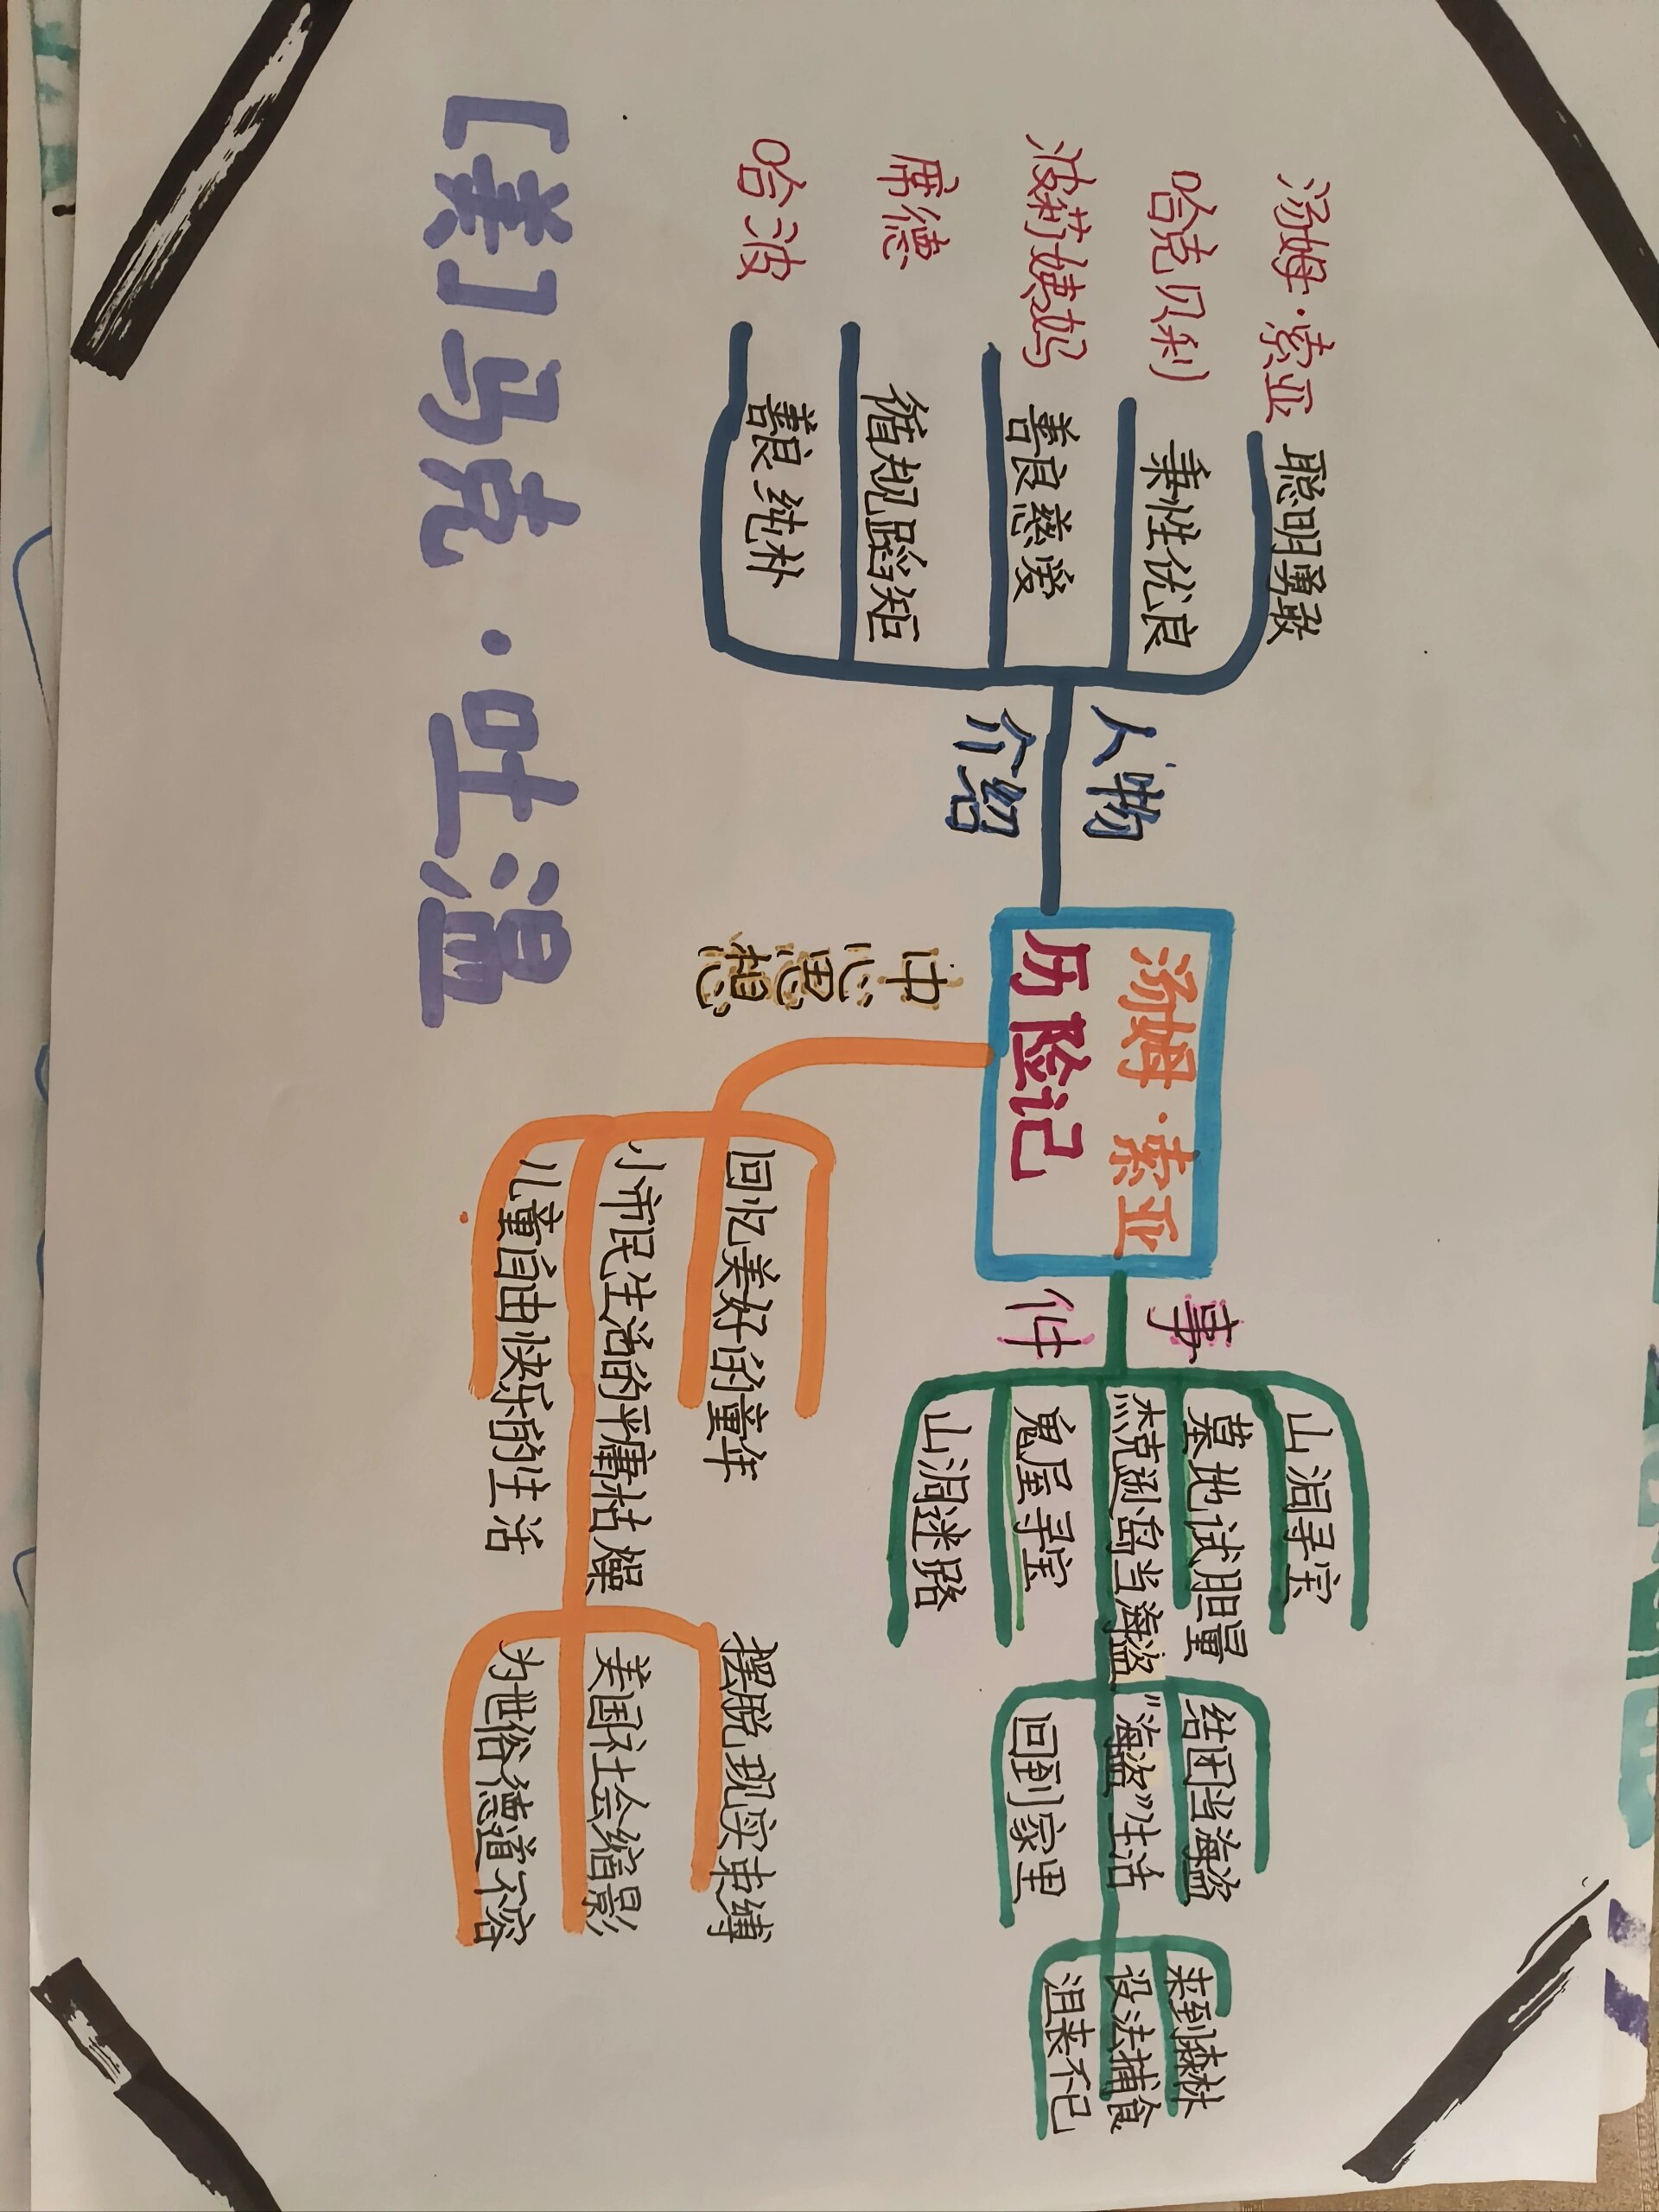 汤姆·索亚
历险记
人物
介绍
汤姆·索亚 聪明勇敢
哈克贝利 秉性优良
波莉姨妈 善良慈爱
席德 循规蹈矩
哈波 善良 纯朴
事
件
山洞寻宝
墓地试胆量
杰克逊岛当海盗
鬼屋寻宝
山洞迷路
结团当海盗
"海盗"生活
回到家里
来到森林
设法捕食
沮丧不已
中心思想
回忆美好的童年
小市民生活的平庸枯燥
儿童自由快乐的生活
摆脱现实束缚
美国社会缩影
为世俗德道不容
[美]马克·吐温